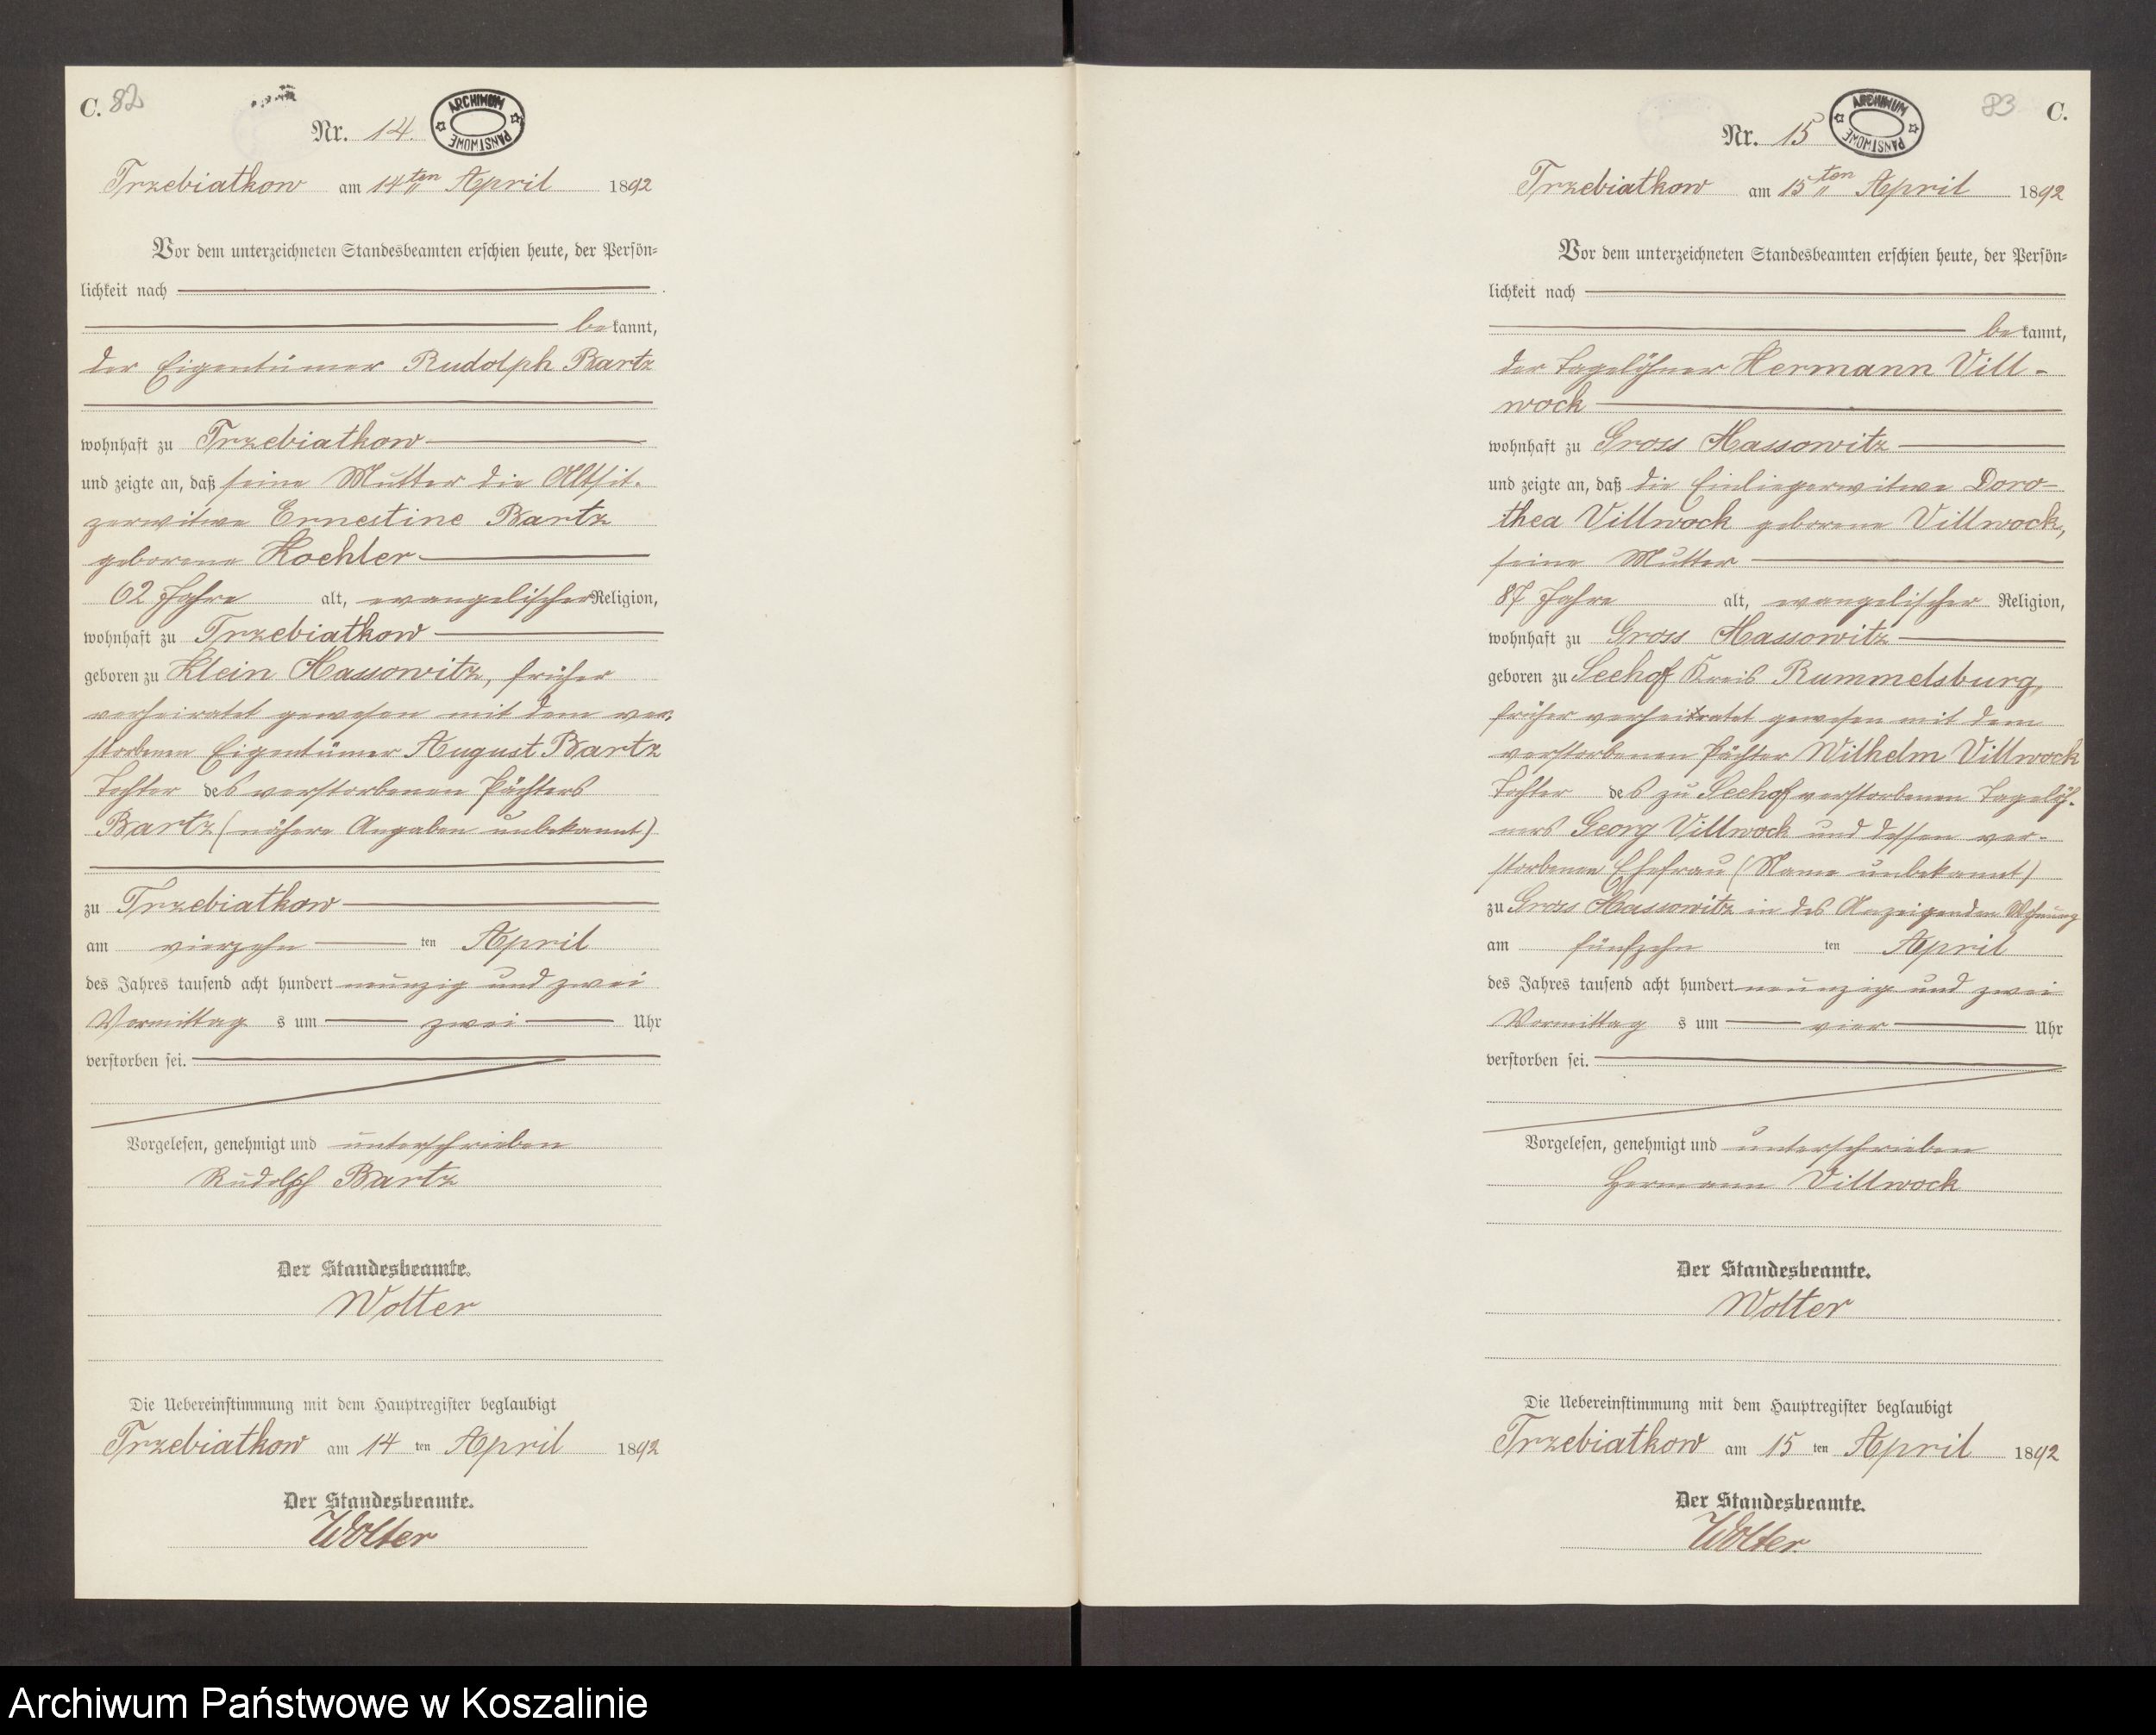 C. 82
Nr. 14.
ARCHIWUM PAŃSTWOWE
Trzebiatkow am 14ten April 1892
Vor dem unterzeichneten Standesbeamten erschien heute, der Persön=
lichkeit nach
bekannt,
der Eigentümer Rudolph Bartz
wohnhaft zu Trzebiatkow
und zeigte an, daß seine Mutter die Altsit-
zerwitwe Ernestine Bartz
geborene Koehler
62 Jahre alt, evangelischer Religion,
wohnhaft zu Trzebiatkow
geboren zu Klein Massowitz, früher
verheiratet gewesen mit dem ver-
storbenen Eigentümer August Bartz
Tochter des verstorbenen Pächters
Bartz (nähere Angaben unbekannt)
zu Trzebiatkow
am vierzehn ten April
des Jahres tausend acht hundert neunzig und zwei
Vormittag s um zwei Uhr
verstorben sei.
Vorgelesen, genehmigt und unterschrieben
Rudolph Bartz
Der Standesbeamte.
Wolter
Die Uebereinstimmung mit dem Hauptregister beglaubigt
Trzebiatkow am 14 ten April 1892
Der Standesbeamte.
Wolter
83 C.
Nr. 15
ARCHIWUM PAŃSTWOWE
Trzebiatkow am 15ten April 1892
Vor dem unterzeichneten Standesbeamten erschien heute, der Persön=
lichkeit nach
bekannt,
der Tagelöhner Hermann Vill-
wock
wohnhaft zu Gross Massowitz
und zeigte an, daß die Einliegerwitwe Doro-
thea Villwock geborene Villwock,
seine Mutter
87 Jahre alt, evangelischer Religion,
wohnhaft zu Gross Massowitz
geboren zu Seehof Kreis Rummelsburg,
früher verheiratet gewesen mit dem
verstorbenen Pächter Wilhelm Villwock
Tochter des zu Seehof verstorbenen Tagelöh-
ners Georg Villwock und dessen ver-
storbenen Ehefrau (Name unbekannt)
zu Gross Massowitz in des Anzeigenden Wohnung
am fünfzehn ten April
des Jahres tausend acht hundert neunzig und zwei
Vormittag s um vier Uhr
verstorben sei.
Vorgelesen, genehmigt und unterschrieben
Hermann Villwock
Der Standesbeamte.
Wolter
Die Uebereinstimmung mit dem Hauptregister beglaubigt
Trzebiatkow am 15 ten April 1892
Der Standesbeamte.
Wolter
Archiwum Państwowe w Koszalinie